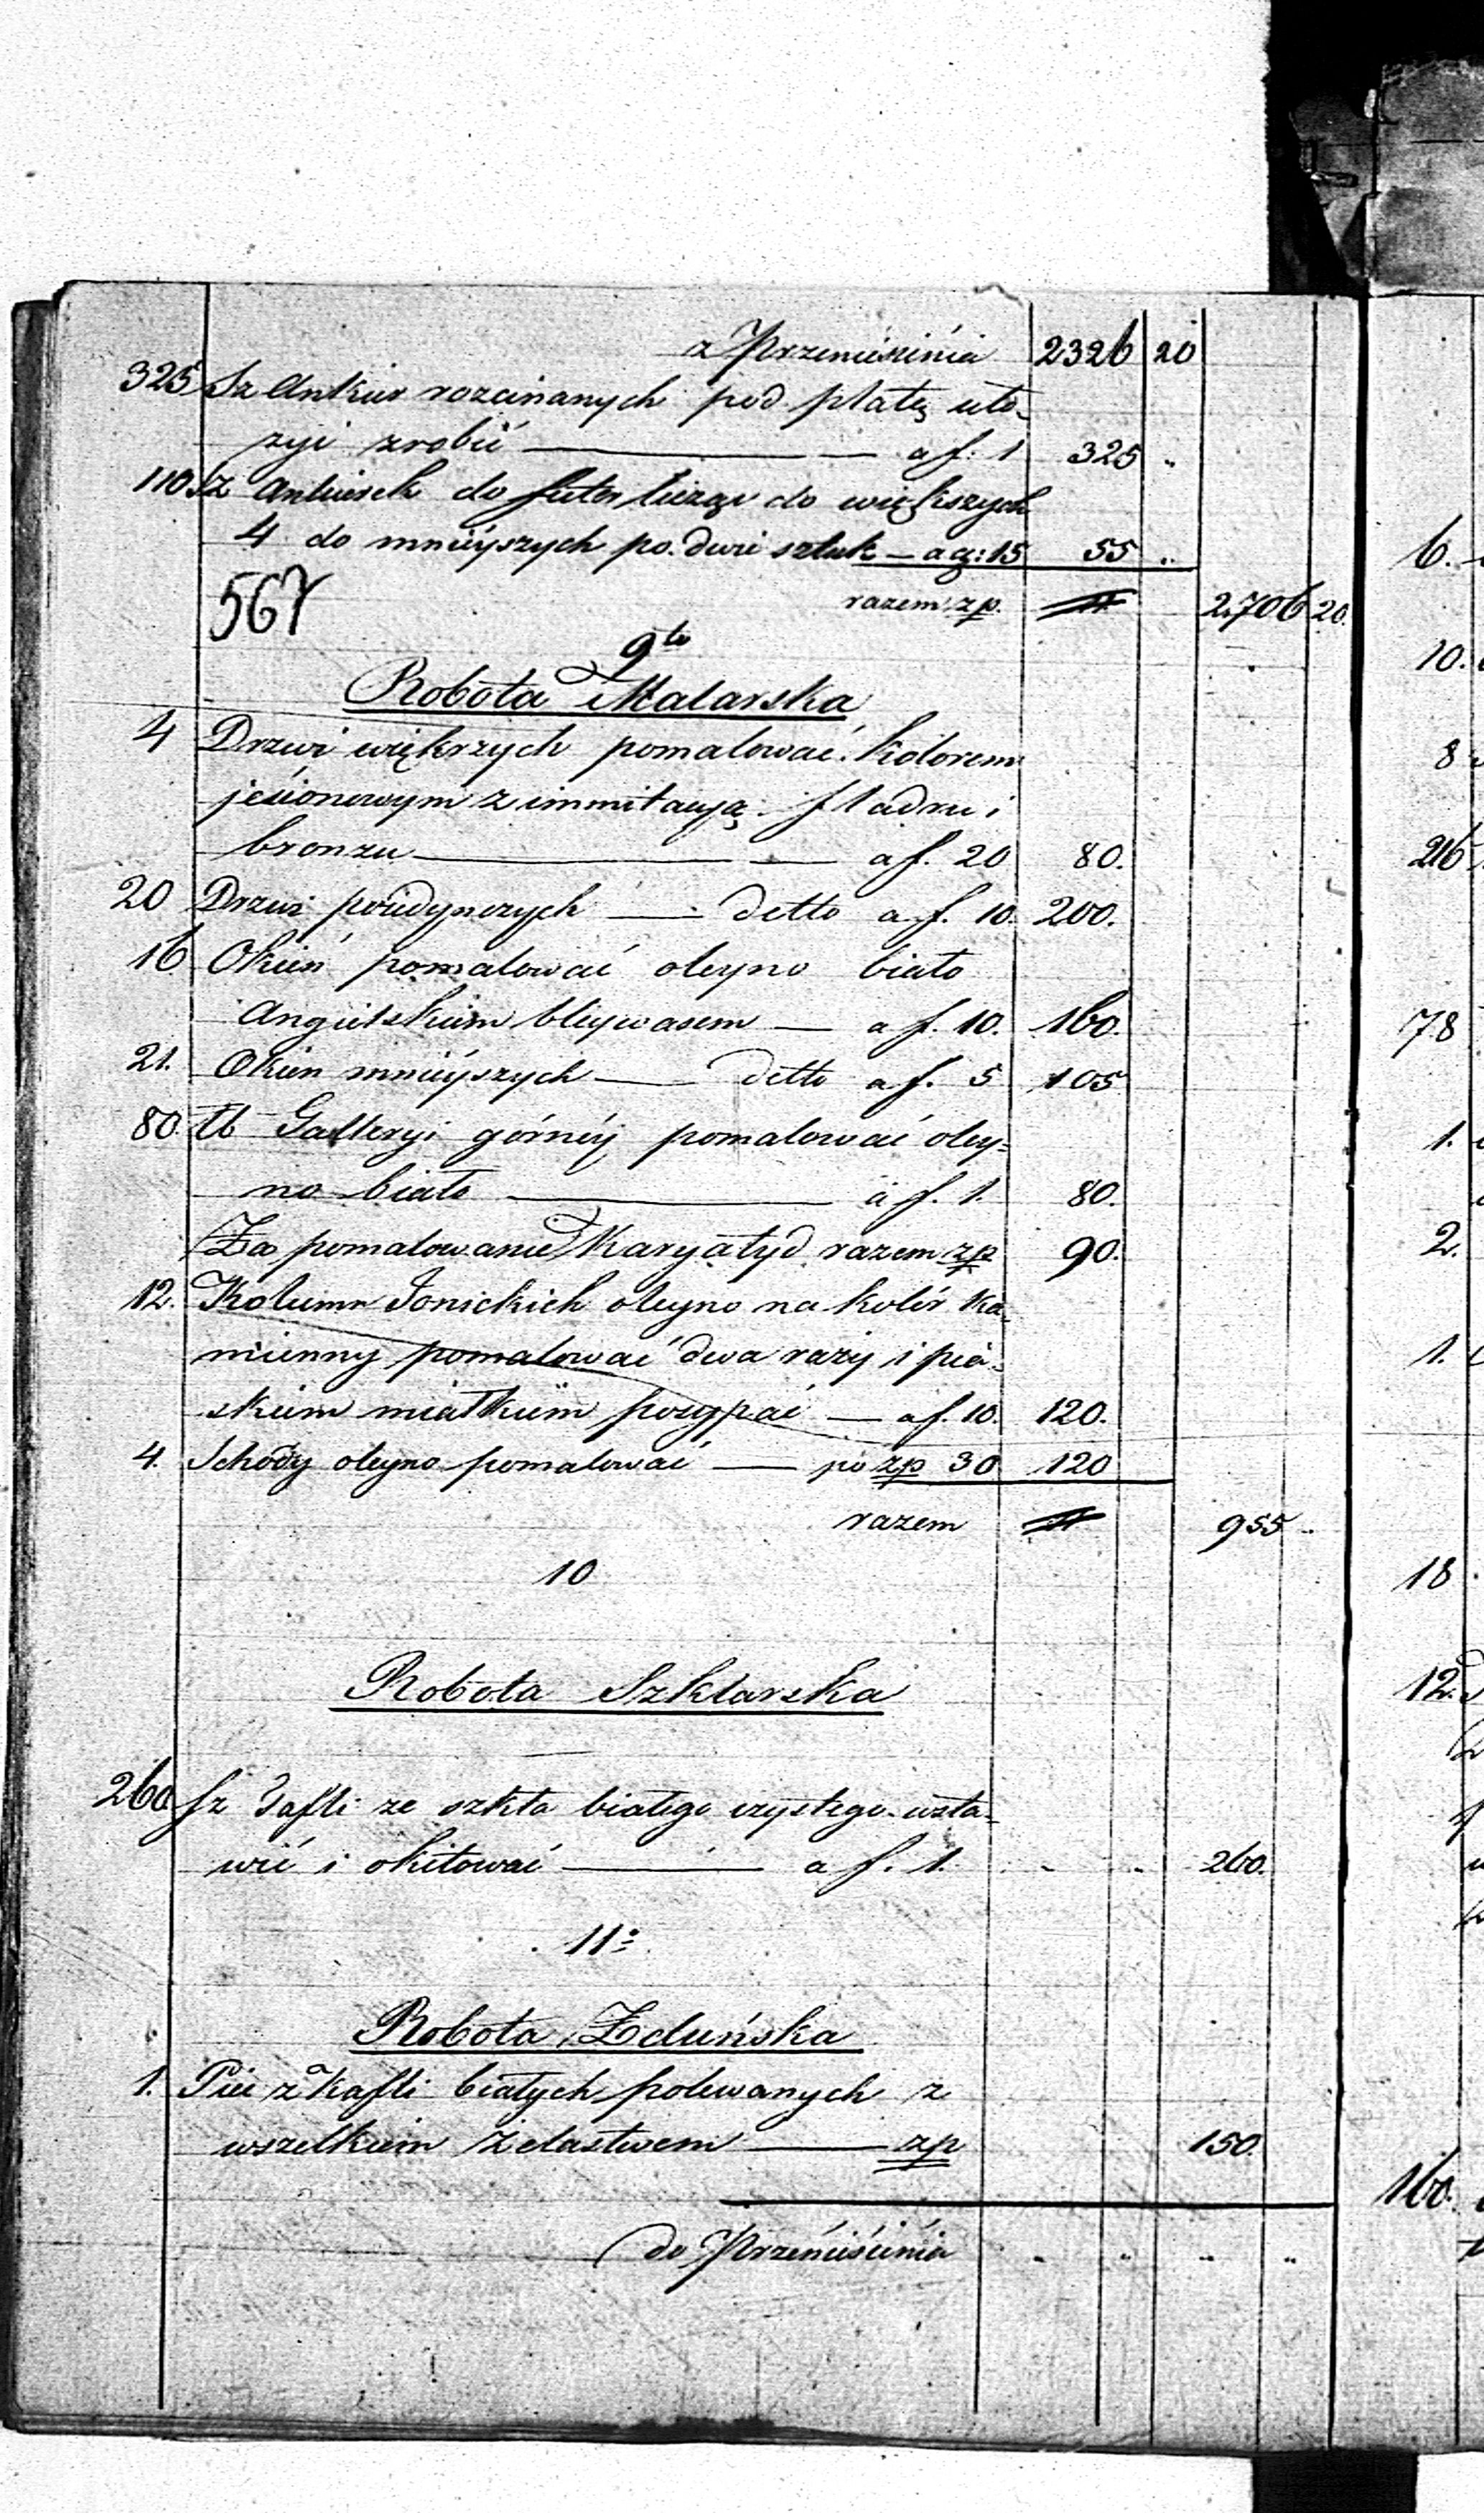 z Przeniesienia 2326 20
325 Sz Ankier rozcinanych pod płatę uło-
żyć zrobić — a f. 1 325 „
110 Sz Ankierek do futer licząc do większych
4 do mnieyszych po dwie sztuk — a g: 15 55 „
567 razem zp. 2,706 20.
9te
Robota Malarska
4 Drzwi większych pomalować kolorem
jesionowym z immitacyą fladru i
bronzu — a f. 20 80.
20 Drzwi poiedynczych — detto a f. 10. 200.
16 Okien pomalować oleyno biało
Angielskiem bleywasem — a f. 10. 160.
21. Okien mnieyszych — detto a f. 5 105
80 łb Galleryi górnéy pomalować oley-
no biało — a f. 1. 80.
Za pomalowanie Karyatyd razem zp 90.
12. Kolumn Jonickich oleyno na kolór ka-
mienny pomalować dwa razy i pia-
skiem miałkiem posypać — a f. 10. 120.
4. Schody oleyno pomalować — po zp 30 120
razem 955 „
10
Robota Szklarska
260 Sz Tafli ze szkła białego czystego wsta-
wić i okitować — a f. 1. „ „ 260.
11:
Robota Zduńska
1. Piec z kafli białych polewanych z
wszelkiem żelastwem — zp 150.
do Przeniesienia „ „ „ „
6.
10.
8
216
78
1.
2.
1.
18
12.
160.